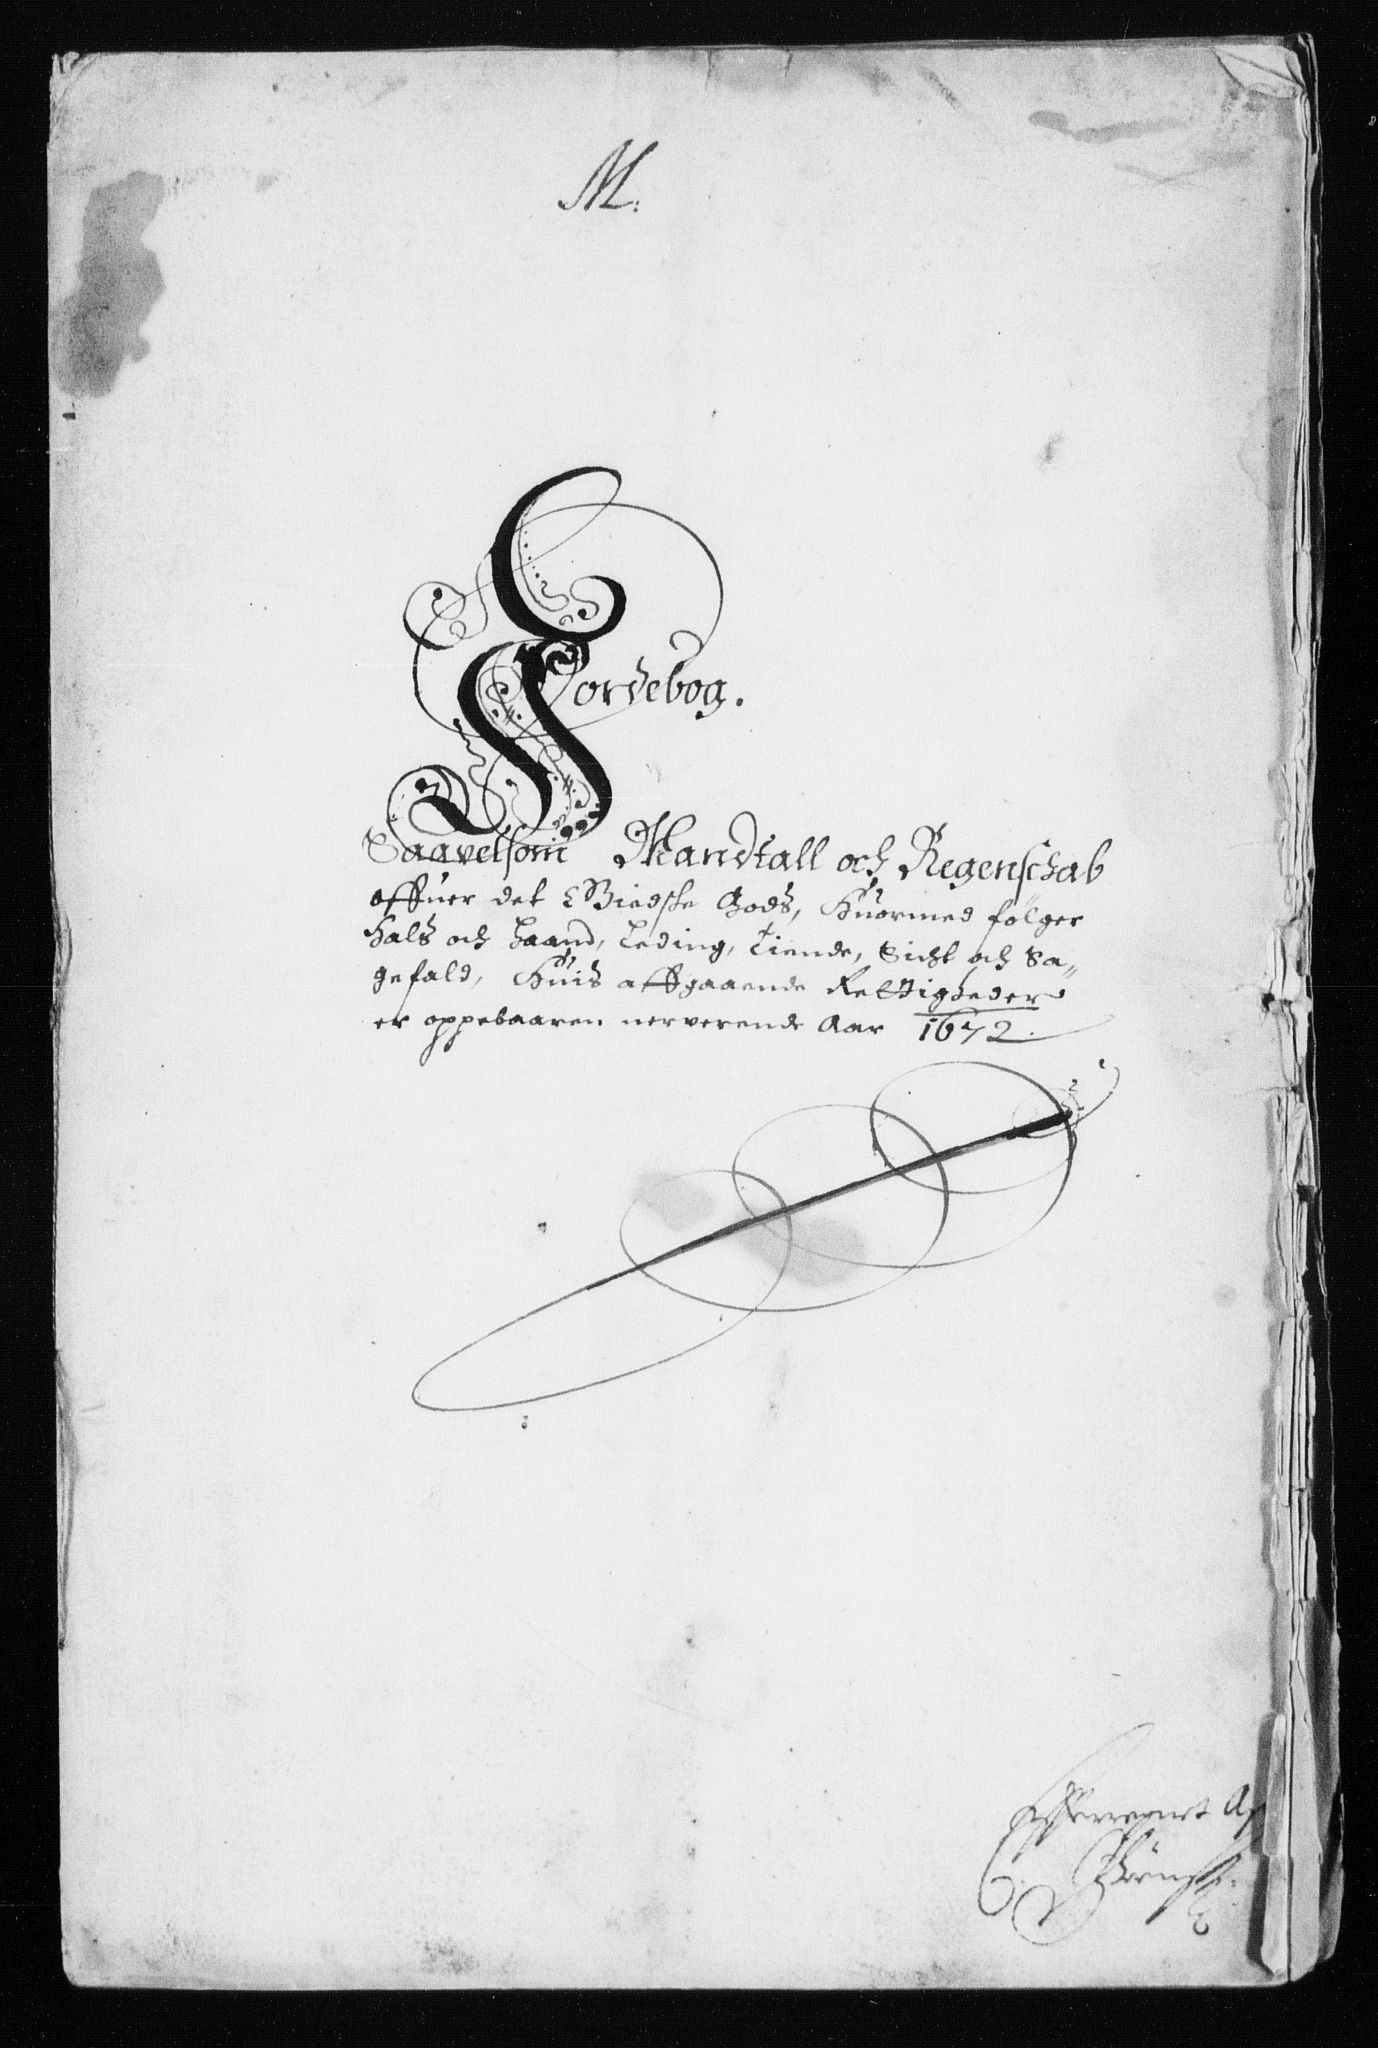 M:
Jordebog.
Saavelsom Mandtall och Regenschab
offuer det Giedske Gods, Huormed følger
Hals och Haand, Leding, Tiende, Sicht och Sa=
gefald, Huis affgaaende Rettigheder
er oppebaaren nerverende Aar 1672.